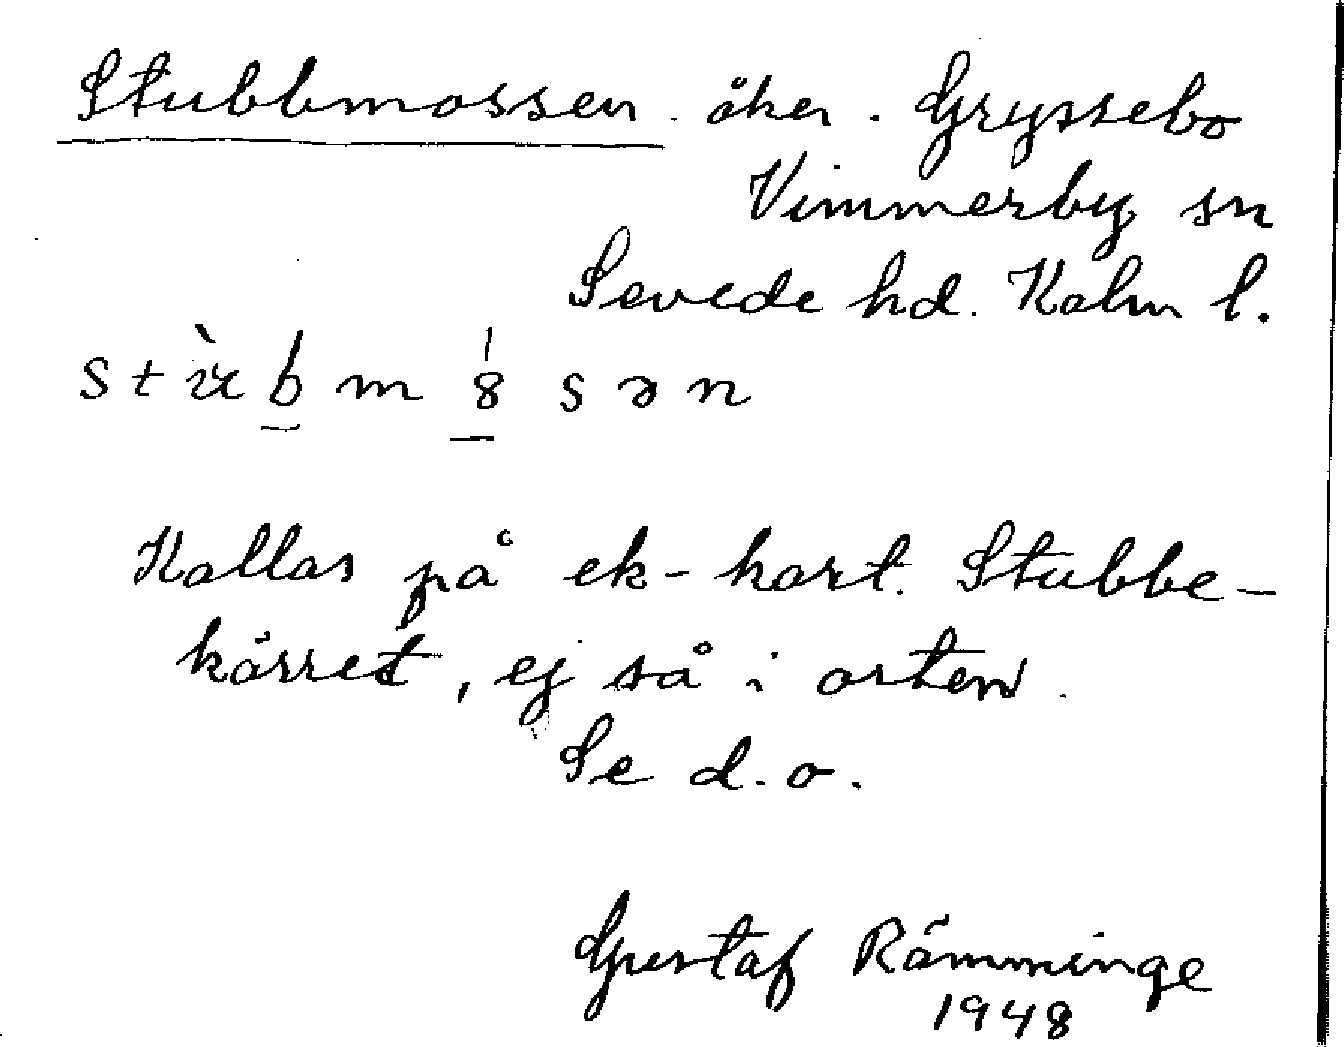 Stubbmossen. åker. Gryssebo
Vimmerby sn
Sevede hd. Kalm l.
stu̇̀b̲m8̲́sən
Kallas på ek-kart. Stubbe-
kärret, ej så i orten.
Se d.o.
Gustaf Rämminge
1948